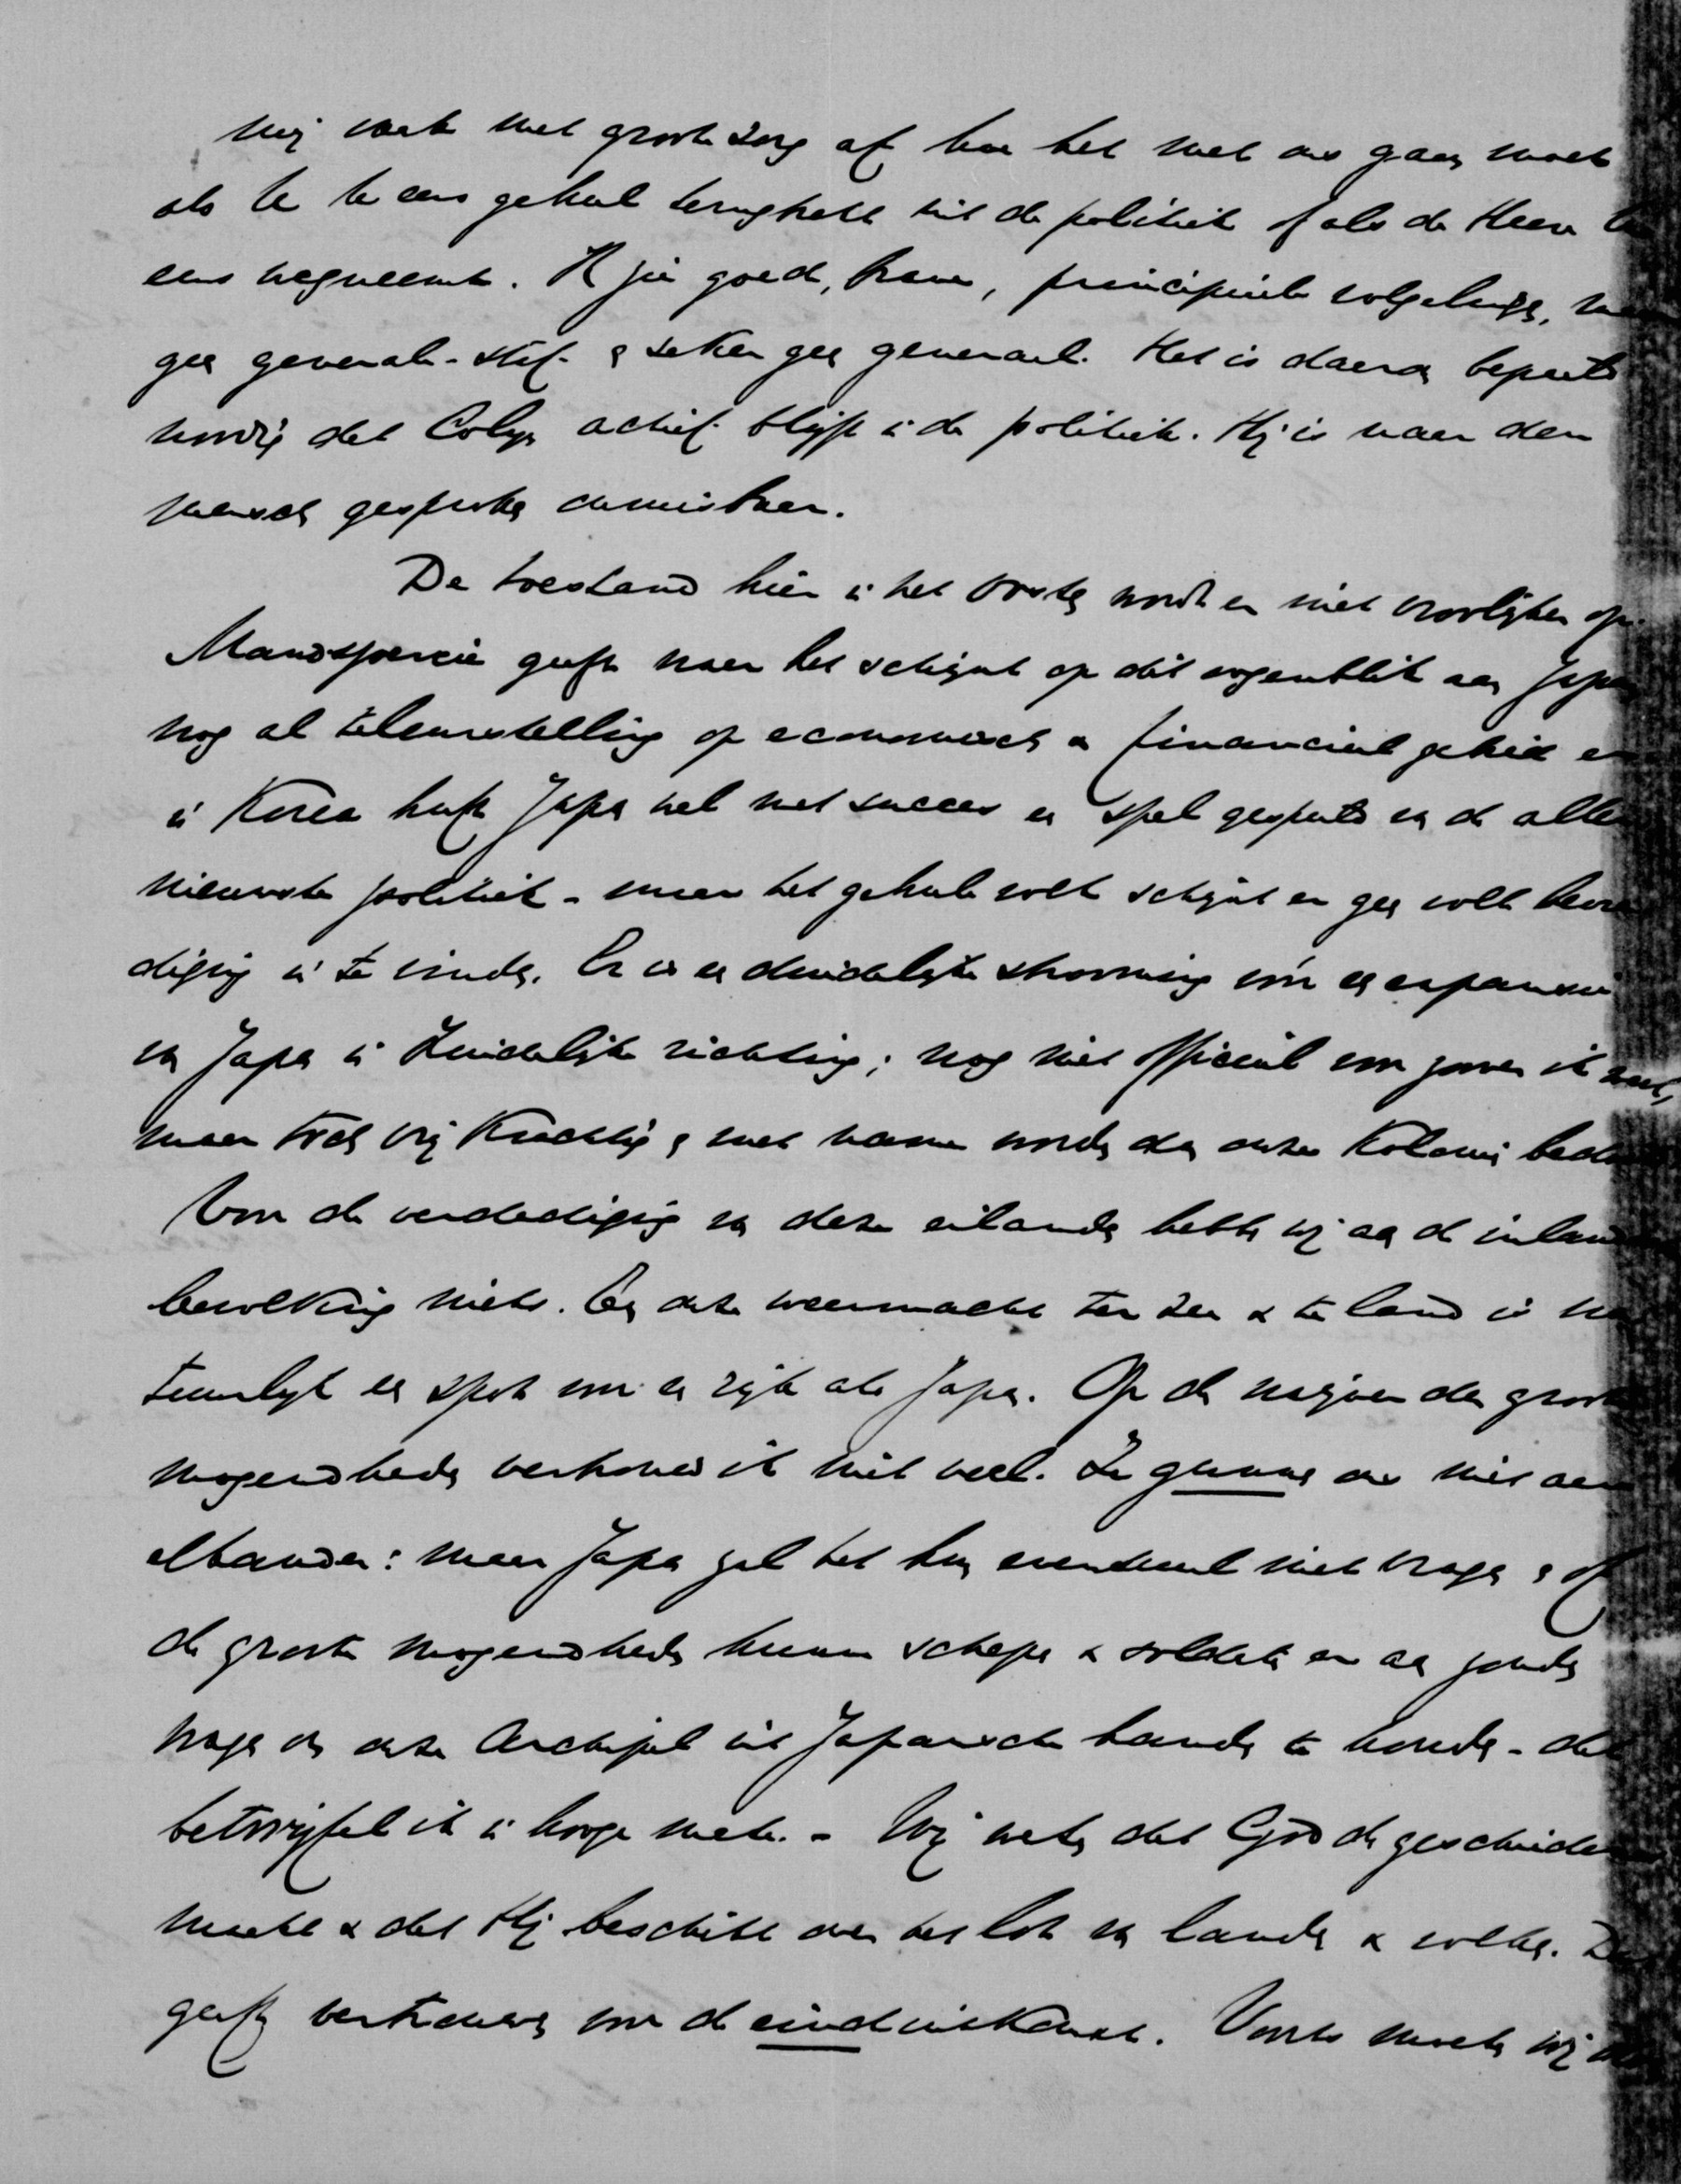 mij vaak met groote zorg af hoe het met ons gaan moet
als U te eens geheel terugtrekt uit de politiek of als de Heere U
eens wegneemt. Ik zie goed, trouwe, principieele volgelingen,
geen generale-staf en zeker geen generaal. Het is daarom bepaald
noodig dat Colijn actief blijft in de politiek. Hij is naar den
mensch gesproken onmisbaar.
De toestand hier in het Oosten wordt er niet vroolijker op.
Mandsjoerije geeft naar het schijnt op dit oogenblik aan Japan
nog al teleurstelling op economisch en financieel gebied en
in Korea heeft Japan wel met succes een spel gespeeld van de aller
nieuwste politiek - maar het geheele volk schijnt er geen volle bevre
diging in te vinden. Er is een duidelijke strooming vóór een expansie
van Japan in Zuidelijke richting; nog niet officieel voor zoover ik weet,
maar toch vrij krachtig en met name worden dan onze Koloniën
Voor de verdediging van deze eilanden hebben wij aan de inlandsche
bevolking niets. En onze weermacht ter zee en te land is na
tuurlijk een spot voor een rijk als Japan. Op de naijver der groote
mogendheden vertrouw ik niet veel. Ze gunnen ons niet aan
elkander: maar Japan zal het hun eventueel niet vragen en of
de groote mogendheden hunne schepen en soldaten er aan zouden
wagen om onze Archipel uit Japansche handen te houden - dat
betwijfel ik in hooge mate. - Wij weten dat God de geschiedenis
maakt en dat Hij beschikt over het lot van landen en volken. Dat
geeft vertrouwen voor de einduitkomst. Voorts moeten wij